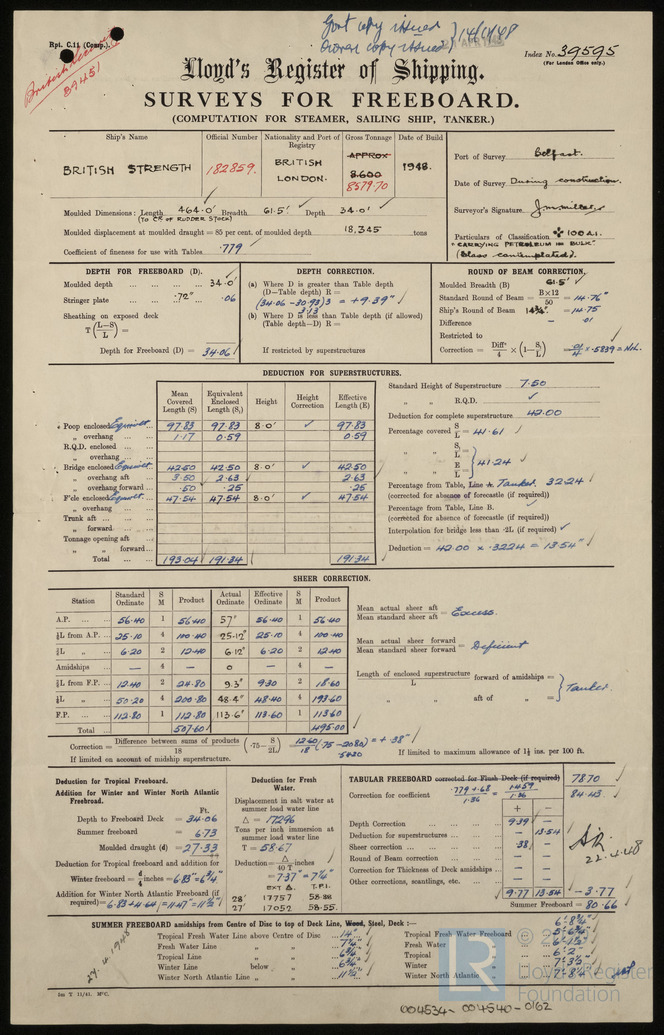 Rpt. C.11 (Comp.)
Govt copy issued
Owners copy issued } 14/4/48
Index No. 39595
(For London Office only.)
89451
Lloyd's Register of Shipping.
SURVEYS FOR FREEBOARD.
(COMPUTATION FOR STEAMER, SAILING SHIP, TANKER.)
Ship's Name Official Number Nationality and Port of Registry Gross Tonnage Date of Build
BRITISH STRENGTH 182859. BRITISH LONDON. APPROX 8.600 8579.70 1948.
Port of Survey Belfast.
Date of Survey During construction.
Surveyor's Signature
Particulars of Classification ✠ 100 A.1.
"CARRYING PETROLEUM IN BULK"
(Class contemplated).
Moulded Dimensions: Length 464.0' Breadth 61.5' Depth 34.0'
(TO CL OF RUDDER STOCK)
Moulded displacement at moulded draught = 85 per cent. of moulded depth 18,345 tons
Coefficient of fineness for use with Tables .779
DEPTH FOR FREEBOARD (D).
Moulded depth ... ... ... 34.0'
Stringer plate ... .72" ... .06
Sheathing on exposed deck
T(L–S/L) =
Depth for Freeboard (D) = 34.06
DEPTH CORRECTION.
(a) Where D is greater than Table depth
(D–Table depth) R =
(34.06 - 30.93) 3 = + 9.39"
3.13
(b) Where D is less than Table depth (if allowed)
(Table depth–D) R =
If restricted by superstructures
ROUND OF BEAM CORRECTION.
Moulded Breadth (B) 61.5'
Standard Round of Beam = B×12/50 = 14.76"
Ship's Round of Beam 14¾" = 14.75
Difference - .01
Restricted to
Correction = Diff/4 × (1–S₁/L) = .01/4 × .5839 = NIL.
DEDUCTION FOR SUPERSTRUCTURES.
Mean Covered Length (S) Equivalent Enclosed Length (S₁) Height Height Correction Effective Length (E)
Poop enclosed 97.83 97.83 8.0' ✓ 97.83
„ overhang 1.17 0.59 0.59
R.Q.D. enclosed ...
„ overhang ...
Bridge enclosed 42.50 42.50 8.0' ✓ 42.50
„ overhang aft 3.50 2.63 2.63
„ overhang forward .50 .25 .25
F'cle enclosed 47.54 47.54 8.0' ✓ 47.54
„ overhang ...
Trunk aft ...
„ forward ...
Tonnage opening aft
„ „ forward ...
Total ... 193.04 191.34 191.34
Standard Height of Superstructure 7.50
„ „ R.Q.D. ✓
Deduction for complete superstructure 42.00
Percentage covered S/L = 41.61
„ „ S₁/L = } 41.24
„ „ E/L =
Percentage from Table, Line A. Tanker. 32.24
(corrected for absence of forecastle (if required))
Percentage from Table, Line B.
(corrected for absence of forecastle (if required))
Interpolation for bridge less than ·2L (if required) ✓
Deduction = 42.00 × .3224 = 13.54"
SHEER CORRECTION.
Station Standard Ordinate S M Product Actual Ordinate Effective Ordinate S M Product
A.P. ... 56.40 1 56.40 57" 56.40 1 56.40
⅙L from A.P. ... 25.10 4 100.40 25.12" 25.10 4 100.40
⅓L „ ... 6.20 2 12.40 6.12" 6.20 2 12.40
Amidships ... — 4 — 0 — 4 —
⅓L from F.P. ... 12.40 2 24.80 9.3" 9.30 2 18.60
⅙L „ ... 50.20 4 200.80 48.4" 48.40 4 193.60
F.P. ... 112.80 1 112.80 113.6" 113.60 1 113.60
Total ... 507.60 495.00
Mean actual sheer aft / Mean standard sheer aft = Excess.
Mean actual sheer forward / Mean standard sheer forward = Deficient
Length of enclosed superstructure / L forward of amidships =
„ „ aft of „ = } Tanker.
Correction = Difference between sums of products / 18 (·75 – S/2L) = 12.60/18 (.75 - .2080) = + .38"
.5420
If limited on account of midship superstructure.
If limited to maximum allowance of 1½ ins. per 100 ft.
Deduction for Tropical Freeboard.
Addition for Winter and Winter North Atlantic Freeboard.
Ft.
Depth to Freeboard Deck = 34.06
Summer freeboard = 6.73
Moulded draught (d) = 27.33
Deduction for Tropical freeboard and addition for
Winter freeboard = d/4 inches = 6.83" = 6¾"
Addition for Winter North Atlantic Freeboard (if
required) = 6.83 + 4.64 = 11.47" = 11½"
Deduction for Fresh Water.
Displacement in salt water at summer load water line
Δ = 17296
Tons per inch immersion at summer load water line
T = 58.67
Deduction = Δ/40 T inches
= 7.37" = 7¼"
EXT Δ. T.P.I.
28' 17757 58.88
27' 17052 58.55
TABULAR FREEBOARD corrected for Flush Deck (if required) 78.70
Correction for coefficient .779 + .68 / 1.36 = 1.459 / 1.36 84.43
+ –
Depth Correction ... 9.39 —
Deduction for superstructures ... — 13.54
Sheer correction ... .38 —
Round of Beam correction ... — —
Correction for Thickness of Deck amidships ... — —
Other corrections, scantlings, etc. ... — —
9.77 13.54 – 3.77
Summer Freeboard = 80.66
22.4.48
SUMMER FREEBOARD amidships from Centre of Disc to top of Deck Line, Wood, Steel, Deck :— 6'-8¾"
Tropical Fresh Water Line above Centre of Disc ... 14" Tropical Fresh Water Freeboard ... 5'-6¾"
Fresh Water Line „ „ ... 7¼" Fresh Water „ ... 6'-1½"
Tropical Line „ „ ... 6¾" Tropical „ ... 6'-2"
Winter Line below „ ... 6¾" Winter „ ... 7'-3½"
Winter North Atlantic Line „ „ ... 11½" Winter North Atlantic „ ... 7'-8¼"
27.4.1948
5m T 11/41. McC.
LR
Lloyd's Register
Foundation
004534-004540-0162